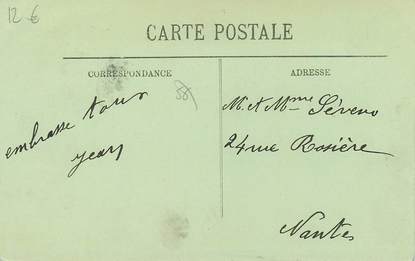 12 €
CARTE POSTALE
CORRESPONDANCE
ADRESSE
38
embrasse tous
M. & Mme Séveno
24 rue Rosière
Nantes